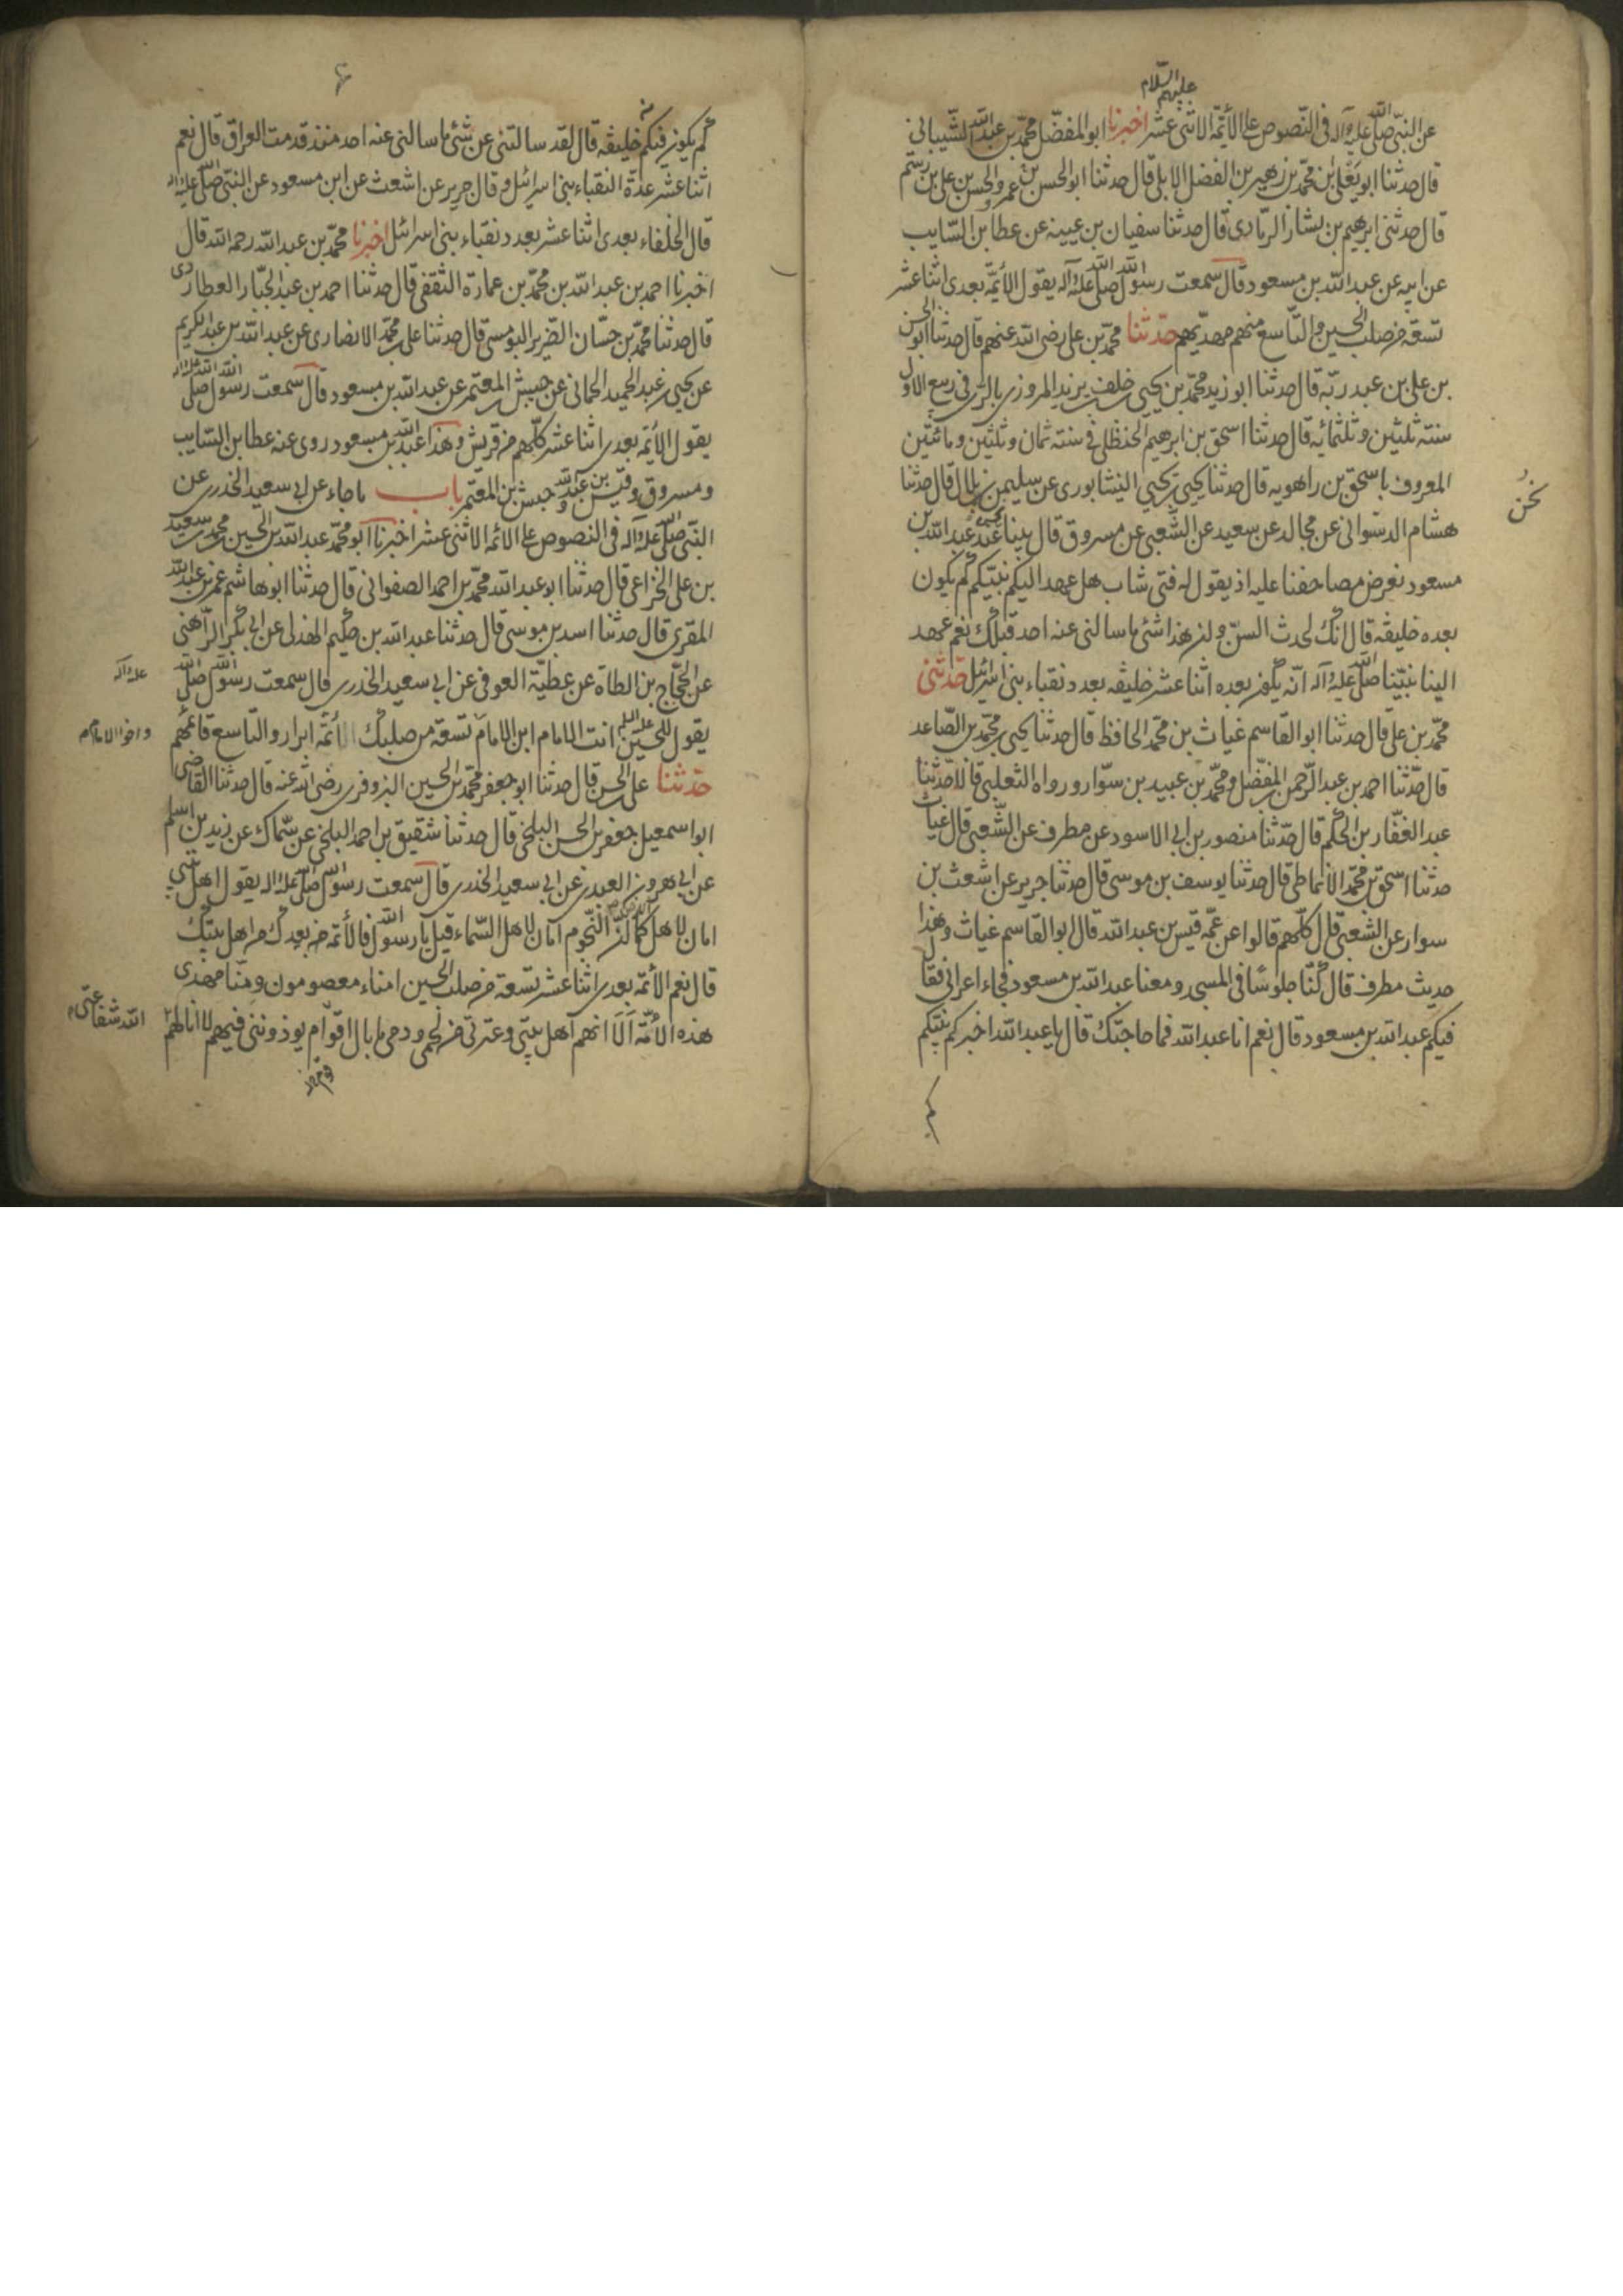 عليهم السلام
عن النبي صلى الله عليه وآله في النصوص على الأئمة الاثني عشر اخبرنا ابو المفضل محمد بن عبد الله الشيباني
قال حدثنا ابو يعلى بن محمد بن زهير بن الفضل الابلي قال حدثنا ابو الحسن بن عمرو الحسن بن علي بن رستم
قال حدثني ابرهيم بن بشار الرمادي قال حدثنا سفيان بن عيينه عن عطا بن السايب
عن ابيه عن عبد الله بن مسعود قال سمعت رسول الله صلى الله عليه وآله يقول الأئمة بعدي اثنا عشر
تسعة من صلب الحسين والتاسع منهم مهديهم حدثنا محمد بن علي رضي الله عنهم قال حدثنا ابو الحسن
بن علي بن عبد ربه قال حدثنا ابو زيد محمد بن يحيى بن خلف بن يزيد المروزي بالري في ربيع الاول
سنته ثلثين وثلثمائه قال حدثنا اسحق بن ابرهيم الحنظلي في سنته ثمان وثلثين ومائتين
المعروف باسحق بن راهويه قال حدثنا يحيى بن يحيي النيشابوري عن سليمن بن بلال قال حدثنا
هشام الدستواني عن مجالد عن سعيد عن الشعبي عن مسروق قال بينا نحن عند عبد الله بن
مسعود نعرض مصاحفنا عليه اذ يقول له فتى شاب هل عهد اليكم نبيكم كم يكون
بعده خليفه قال انك لحدث السن وان هذا شئ ما سالني عنه احد قبلك نعم عهد
الينا نبينا صلى الله عليه وآله انه يكون بعده اثنا عشر خليفه بعدد نقباء بني اسرائيل حدثني
محمد بن علي قال حدثنا ابو القاسم غياث بن محمد الحافظ قال حدثنا يحيى بن محمد بن الصاعد
قال حدثنا احمد بن عبد الرحمن بن المفضل ومحمد بن عبيد بن سوار ورواه الثعلبي قالا حدثنا
عبد الغفار بن الحكم قال حدثنا منصور بن ابي الاسود عن مطرف عن الشعبي قال غياث
حدثنا اسحق بن محمد الأنماطي قال حدثنا يوسف بن موسى قال حدثنا جرير عن اشعث بن
سوار عن الشعبي قال كلهم قالوا عن عمه قيس بن عبد الله قال ابو القاسم غياث وهذا
حديث مطرف قال كنا جلوسًا في المسجد ومعنا عبد الله بن مسعود فجاء اعرابي فقال
فيكم عبد الله بن مسعود قال نعم انا عبد الله فما حاجتك قال يا عبد الله اخبركم نبيكم
نحن
كم يكون فيكم من خليفه قال لقد سالتني عن شئ ما سالني عنه احد منذ قدمت العراق قال نعم
اثنا عشر عدة النقباء بني اسرائيل وقال جرير عن اشعث عن ابن مسعود عن النبي صلى الله عليه وآله
قال الخلفاء بعدي اثنا عشر بعدد نقباء بني اسرائيل اخبرنا محمد بن عبد الله رحمه الله قال
اخبرنا احمد بن عبد الله بن محمد بن عمارة الثقفي قال حدثنا احمد بن عبد الجبار العطاردي
قال حدثنا محمد بن حسان الضرير البوسي قال حدثنا علي بن محمد الانصاري عن عبد الله بن عبد الكريم
عن يحيى بن عبد الحميد الحماني عن حبيش بن المعتمر عن عبد الله بن مسعود قال سمعت رسول الله صلى الله عليه وآله
يقول الأئمة بعدي اثنا عشر كلهم من قريش وهذا عبد الله بن مسعود روى عنه عطا بن السايب
ومسروق وقيس بن عبد الله وحبش بن المعتمر باب ما جاء عن ابي سعيد الخدري عن
النبي صلى الله عليه وآله في النصوص على الائمه الاثني عشر اخبرنا ابو محمد عبد الله بن الحسين بن محمد بن سعيد
بن علي الخزاعي قال حدثنا ابو عبد الله محمد بن احمد الصفواني قال حدثنا ابو هاشم عمر بن عبد الله
المقري قال حدثنا اسد بن موسى قال حدثنا عبد الله بن حكيم الهذلي عن ابي بكر الراهني
عن الحجاج بن الطاة عن عطية العوفي عن ابي سعيد الخدري قال سمعت رسول الله صلى الله
عليه وآله
يقول للحسين عليه السلم انت الامام ابن الامام تسعة من صلبك أئمة ابرار والتاسع قائمهم
واخو الامام
حدثنا علي بن الحسن قال حدثنا ابو جعفر محمد بن الحسين البزوفري رضي الله عنه قال حدثنا القاضي
ابو اسمعيل جعفر بن الحسن البلخي قال حدثنا شقيق بن احمد البلخي عن سماك عن زيد بن اسلم
عن ابي هرون العبدي عن ابي سعيد الخدري قال سمعت رسول الله صلى الله عليه وآله يقول اهل بيتي
امان لاهل الارض كما ان النجوم امان لاهل السماء قيل يا رسول الله فالأئمة من بعدك من اهل بيتك
قال نعم الأئمة بعدي اثنا عشر تسعة من صلب الحسين امناء معصومون ومنا مهدي
هذه الامة الا انهم اهل بيتي وعترتي من لحمي ودمي ما بال اقوام يوذونني فيهم لا انالهم
الله شفاعتي